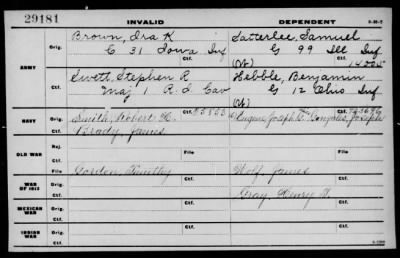 29181 INVALID DEPENDENT
Brown, Ira K Satterlee, Samuel
ARMY Orig. C 31 Iowa Inf G 99 Ill Inf
Ctf. (W) Ctf. 14005
Swett, Stephen R Hebble, Benjamin
Orig. Maj 1 R.I. Cav G 12 Ohio Inf
Ctf. (W)
NAVY Orig. Smith, Robert H. Ctf. Eugene, Joseph Gonzales, Joseph
Ctf. Brady, James
OLD WAR Rej.
Ctf. File File
WAR OF 1812 Orig. Gordon, Timothy Wolf, James
Ctf. Ctf.
MEXICAN WAR Orig. Ctf. Gray, Henry Ctf.
Ctf.
INDIAN WAR Orig.
Ctf.